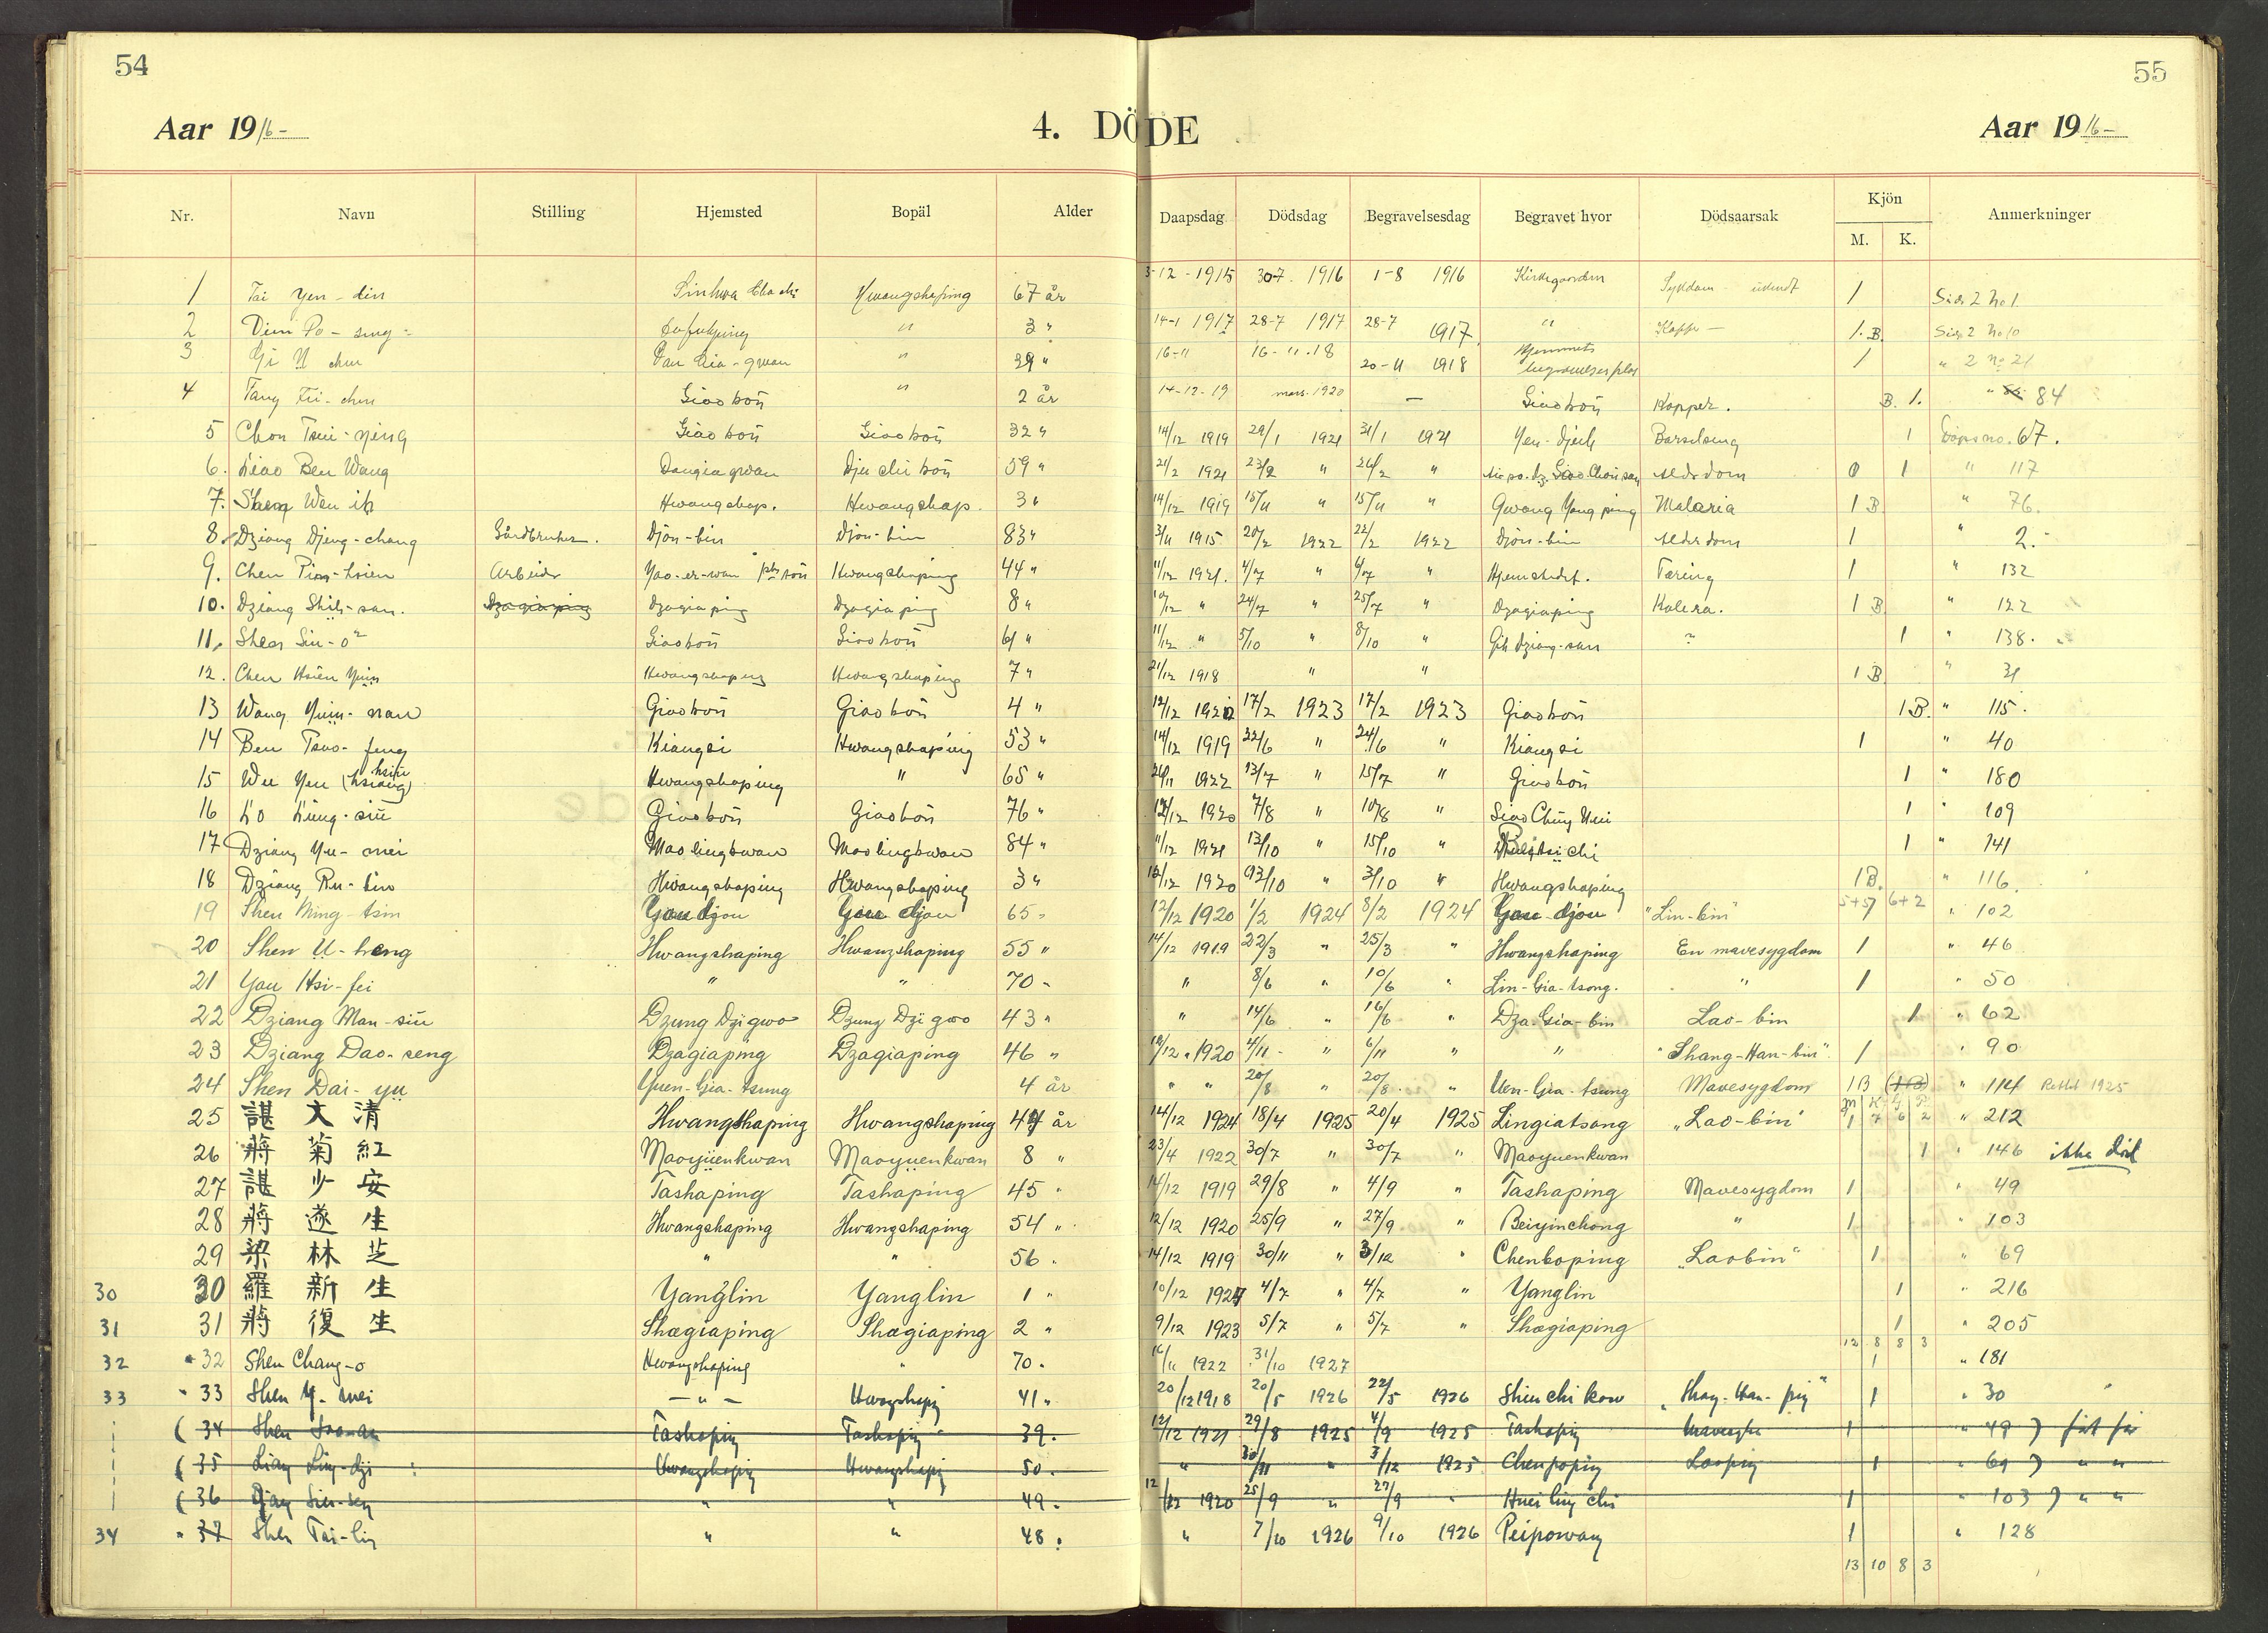 54
55
Aar 1916-
4. DÖDE
Aar 1916-
Nr. Navn Stilling Hjemsted Bopäl Alder Daapsdag Dödsdag Begravelsesdag Begravet hvor Dödsaarsak Kjön Anmerkninger
M. K.
1 Tai Yen-din Sinhwa Hwangshaping 67 år 3-12-1915 30-7. 1916 1-8 1916 Kirkegaarden Sykdom 1 Side 2 No 1
2 Po-sung " 3 " 14-1 1917 28-7 1917 28-7 1917 " Kopper - 1. B. Side 2 No 10
3 " 39 " 16-11 16-11.18 20-11 1918 Hjemmets 1 " 2 No 21
4 Tang 2 år 14-12-19 mars. 1920 - Giaokoü Kopper. B. 1. " 84
5 Chou Tsui-ying Giaokoü Giaokoü 32 " 14/12 1919 29/1 1921 31/1 1921 Barselseng 1 67.
6. Liao Ben Wang 59 " 21/2 1921 23/2 " 26/2 " Alderdom 0 1 " 117
7. Wen ih Hwangshap. Hwangshap. 3 " 14/12 1919 15/11 " 15/11 " Gwang Yang ping Malaria 1 B " 76.
8. Dziang Djeng-chang Gårdbruker. Djön-bin Djön-bin 83 " 3/11 1915 20/2 1922 22/2 1922 Djön-bin Alderdom 1 " 2.
9. Chen -hsien Arbeider Yao-er-wan Hwangshaping 44 " 11/12 1921. 4/7 " 6/7 " Hjemstedet. Tæring 1 " 132
10. Dziang Shih-san. Dzagiaping Dzagiaping Dzagiaping 8 " 10/12 " 24/7 " 25/7 " Dzagiaping Kolera. 1 B " 122
11. Shen Siu-o Giaokoü Giaokoü 61 " 11/12 " 5/10 " 8/10 " Gih Dziang-san ? 1 " 138.
12. Chen Hsien Yüin Hwangshaping Hwangshaping 7 " 21/12 1918 " " 1 B " 31
13 Wang Yüin-nan Giaokoü Giaokoü 4 " 12/12 1920 17/2 1923 17/2 1923 Giaokoü 1 B. " 115.
14 Ben Tsao-feng Kiangsi Hwangshaping 53 " 14/12 1919 22/6 " 24/6 " Kiangsi 1 " 40
15 Wu Yen (hsiang) hsiu Hwangshaping " 65 " 26/11 1922 13/7 " 15/7 " Giaokoü 1 " 180
16 Lo Lüng-siü Giaokoü Giaokoü 76 " 12/12 1920 7/8 " 10/8 " Siao Chüng 1 " 109
17 Dziang Yu-mei Maolingkwan Maolingkwan 84 " 11/12 1921 13/10 " 15/10 " 1 " 141
18 Dziang Ru-lin Hwangshaping Hwangshaping 3 " 12/12 1920 /10 " 3/10 " Hwangshaping 1 B. " 116.
5+5 6+2
19 Shen Ming-tsin Gau djou Gau djou 65 " 12/12 1920 1/2 1924 8/2 1924 Gau-djou "Lin-bin" 1 " 102
20 Shen U-heng Hwangshaping Hwangshaping 55 " 14/12 1919 22/3 " 25/3 " Hwangshaping En mavesygdom 1 " 46
21 Yau Hsi-fei " " 70 " " 8/6 " 10/6 " Lin-Gia-tsong. " 1 " 50
22 Dziang Man-siü Dzung Dzi gwo Dzung Dzi gwo 43 " " 14/6 " 16/6 " Dza-Gia-bin Lao-bin 1 " 62
23 Dziang Dao-seng Dzagiaping Dzagiaping 46 " 12/12 1920 4/11 " 6/11 " " "Shang-Han-bin" 1 " 90
24 Shen Dai-yu Yuen-Gia-tsung 4 år " " 20/8 " 20/8 " Uen-Gia-tsung Mavesygdom 1 B (1 B) " 114 Rettet 1925
9 7 6 2
25 諶 文 清 Hwangshaping Hwangshaping 44 år 14/12 1924 18/4 1925 20/4 1925 Lingiatsong "Lao-bin" 1 " 212
26 蔣 菊 紅 Maoyüenkwan Maoyuenkwan 8 " 23/4 1922 30/7 " 30/7 " Maoyuenkwan 1 " 146 ikke död
27 諶 少 安 Tashaping Tashaping 45 " 14/12 1919 29/8 " 4/9 " Tashaping Mavesygdom 1 " 49
28 蔣 遂 生 Hwangshaping Hwangshaping 54 " 12/12 1920 25/9 " 27/9 " Beiyinchong " 1 " 103
29 梁 林 芝 " " 56 " 14/12 1919 30/11 " 3/12 " Chenboping "Laobin" 1 " 69
30 30 羅 新 生 Yanglin Yanglin 1 " 10/12 1924 4/7 " 4/7 " Yanglin 1 " 216
31 31 蔣 復 生 Shægiaping Shægiaping 2 " 9/12 1923 5/7 " 5/7 " Shægiaping 1 " 205
12 8 8 3
32 32 Shen Chang-o Hwangshaping " 70 " /11 1922 31/10 1927 1 " 181
33 33 Shen Y-mei - " - Hwangshaping 41 " 20/12 1918 20/5 1926 22/5 1926 Shinchikow "Shang-Han-pin" 1 " 30
(34 Shen Tashaping Tashaping 39 " 12/12 1921 29/8 1925 4/9 1925 Tashaping 1 " 49)
(35 Liang Lin-dji Hwangshaping Hwangshaping 50 " " 30/11 " 3/12 1925 Chenpoping Laopin 1 " 69) " "
(36 " " 49 " 12/12 1920 25/9 " 27/9 " Huei ling chi 1 " 103) " "
34 37 Shen Tai-lin " " 48 " " 7/10 1926 9/10 1926 Peipowang 1 " 128
13 10 8 3